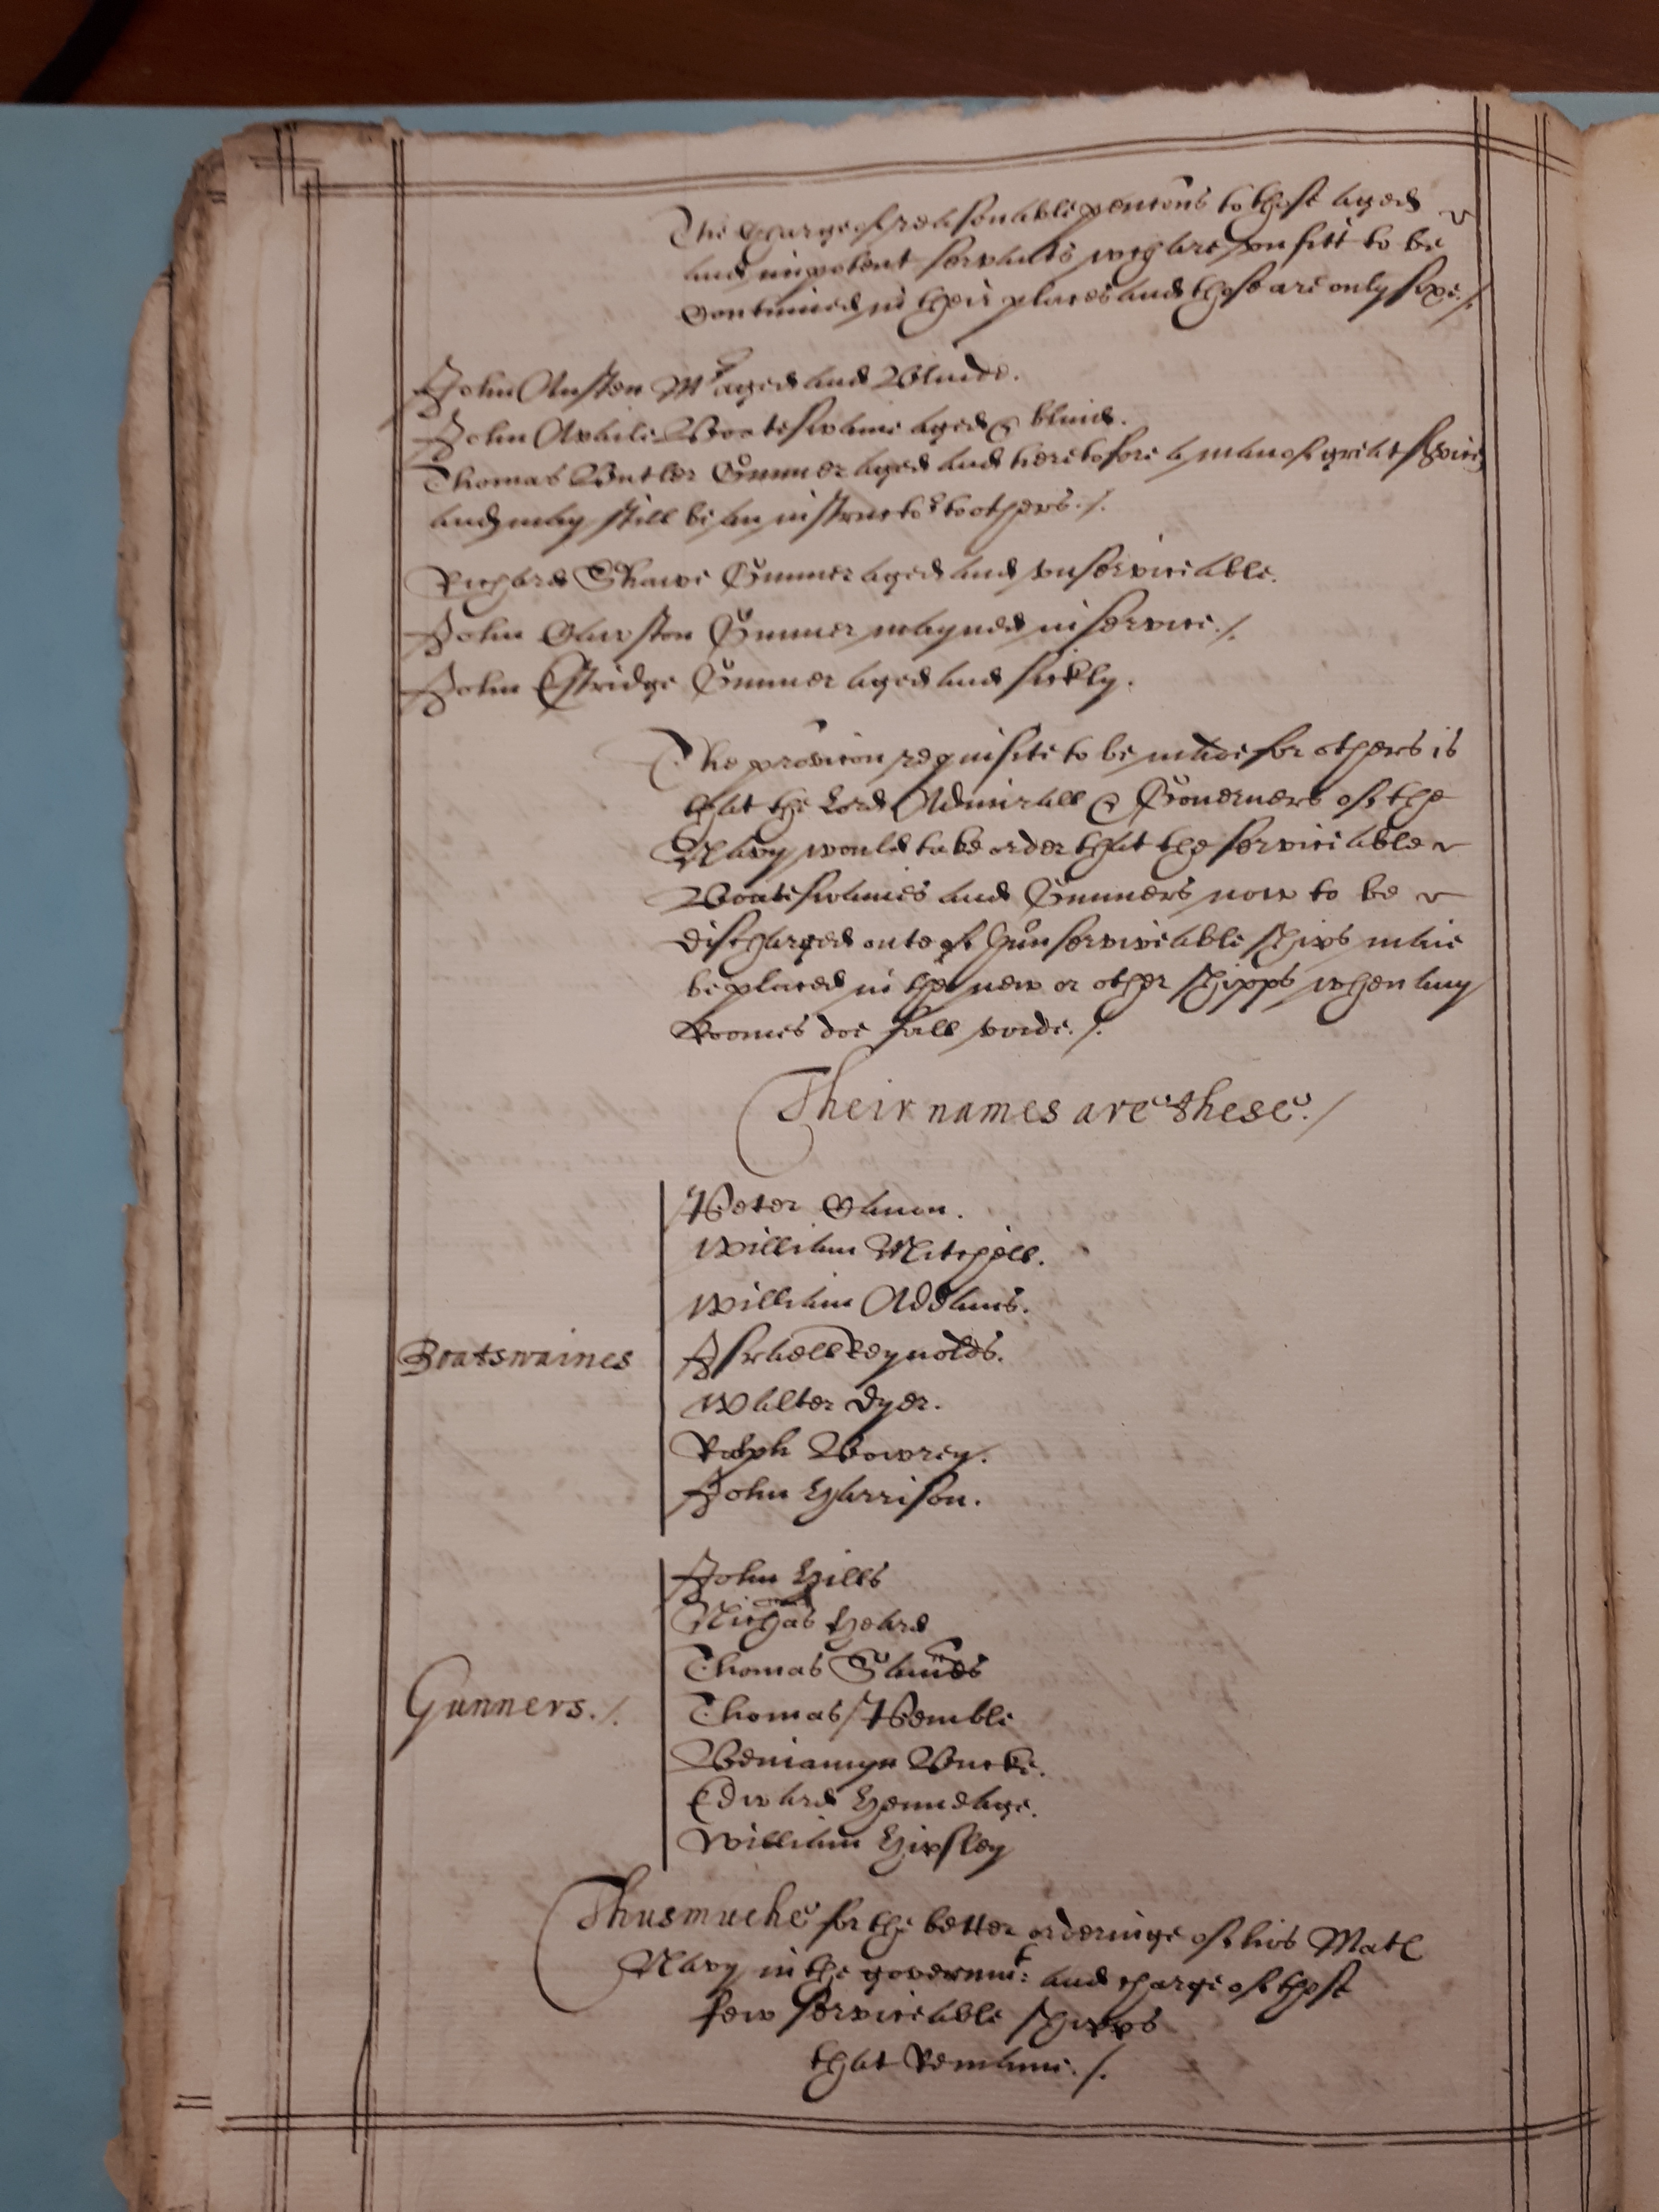 The Charge of reasonable pencons to those aged
and impotent servants wch are vnfitt to be
contineued in their places and those are only sixe./.
John Austen Mr aged and Blinde.
John Avale Boateswaine aged & blind.
Thomas Butler Gunner aged and heretofore a man of great service
and may still be an instructor to others./.
Richard Shawe Gunner aged and vnserviceable.
John Clawston Gunner maymed in service./.
John Estridge Gunner aged and sickly.
The provicon requisite to be made for others is
that the Lord Admirall & Gouerners of the
Navy would take order that the serviceable
Boateswaines and Gunners now to be
discharged oute of Hun serviceable shipps maie
be placed in the new or other shipps when any
Roomes doe fall voide./.
Their names are these./
Boatswaines
Peter Canon.
William Mitchell.
William Addams.
Israell Reynolds.
Walter Dyer.
Ralph Bowrey.
John Harrison.
Gunners./.
John Hills
Nichas Heard
Thomas Sands
Thomas Pemble
Beniamyn Bucke.
Edward Hennedage.
William Hipsley
Thus muche for the better orderinge of his Mats
Navy in the governmt: and charge of those
few serviceable shipps
that Remaine./.